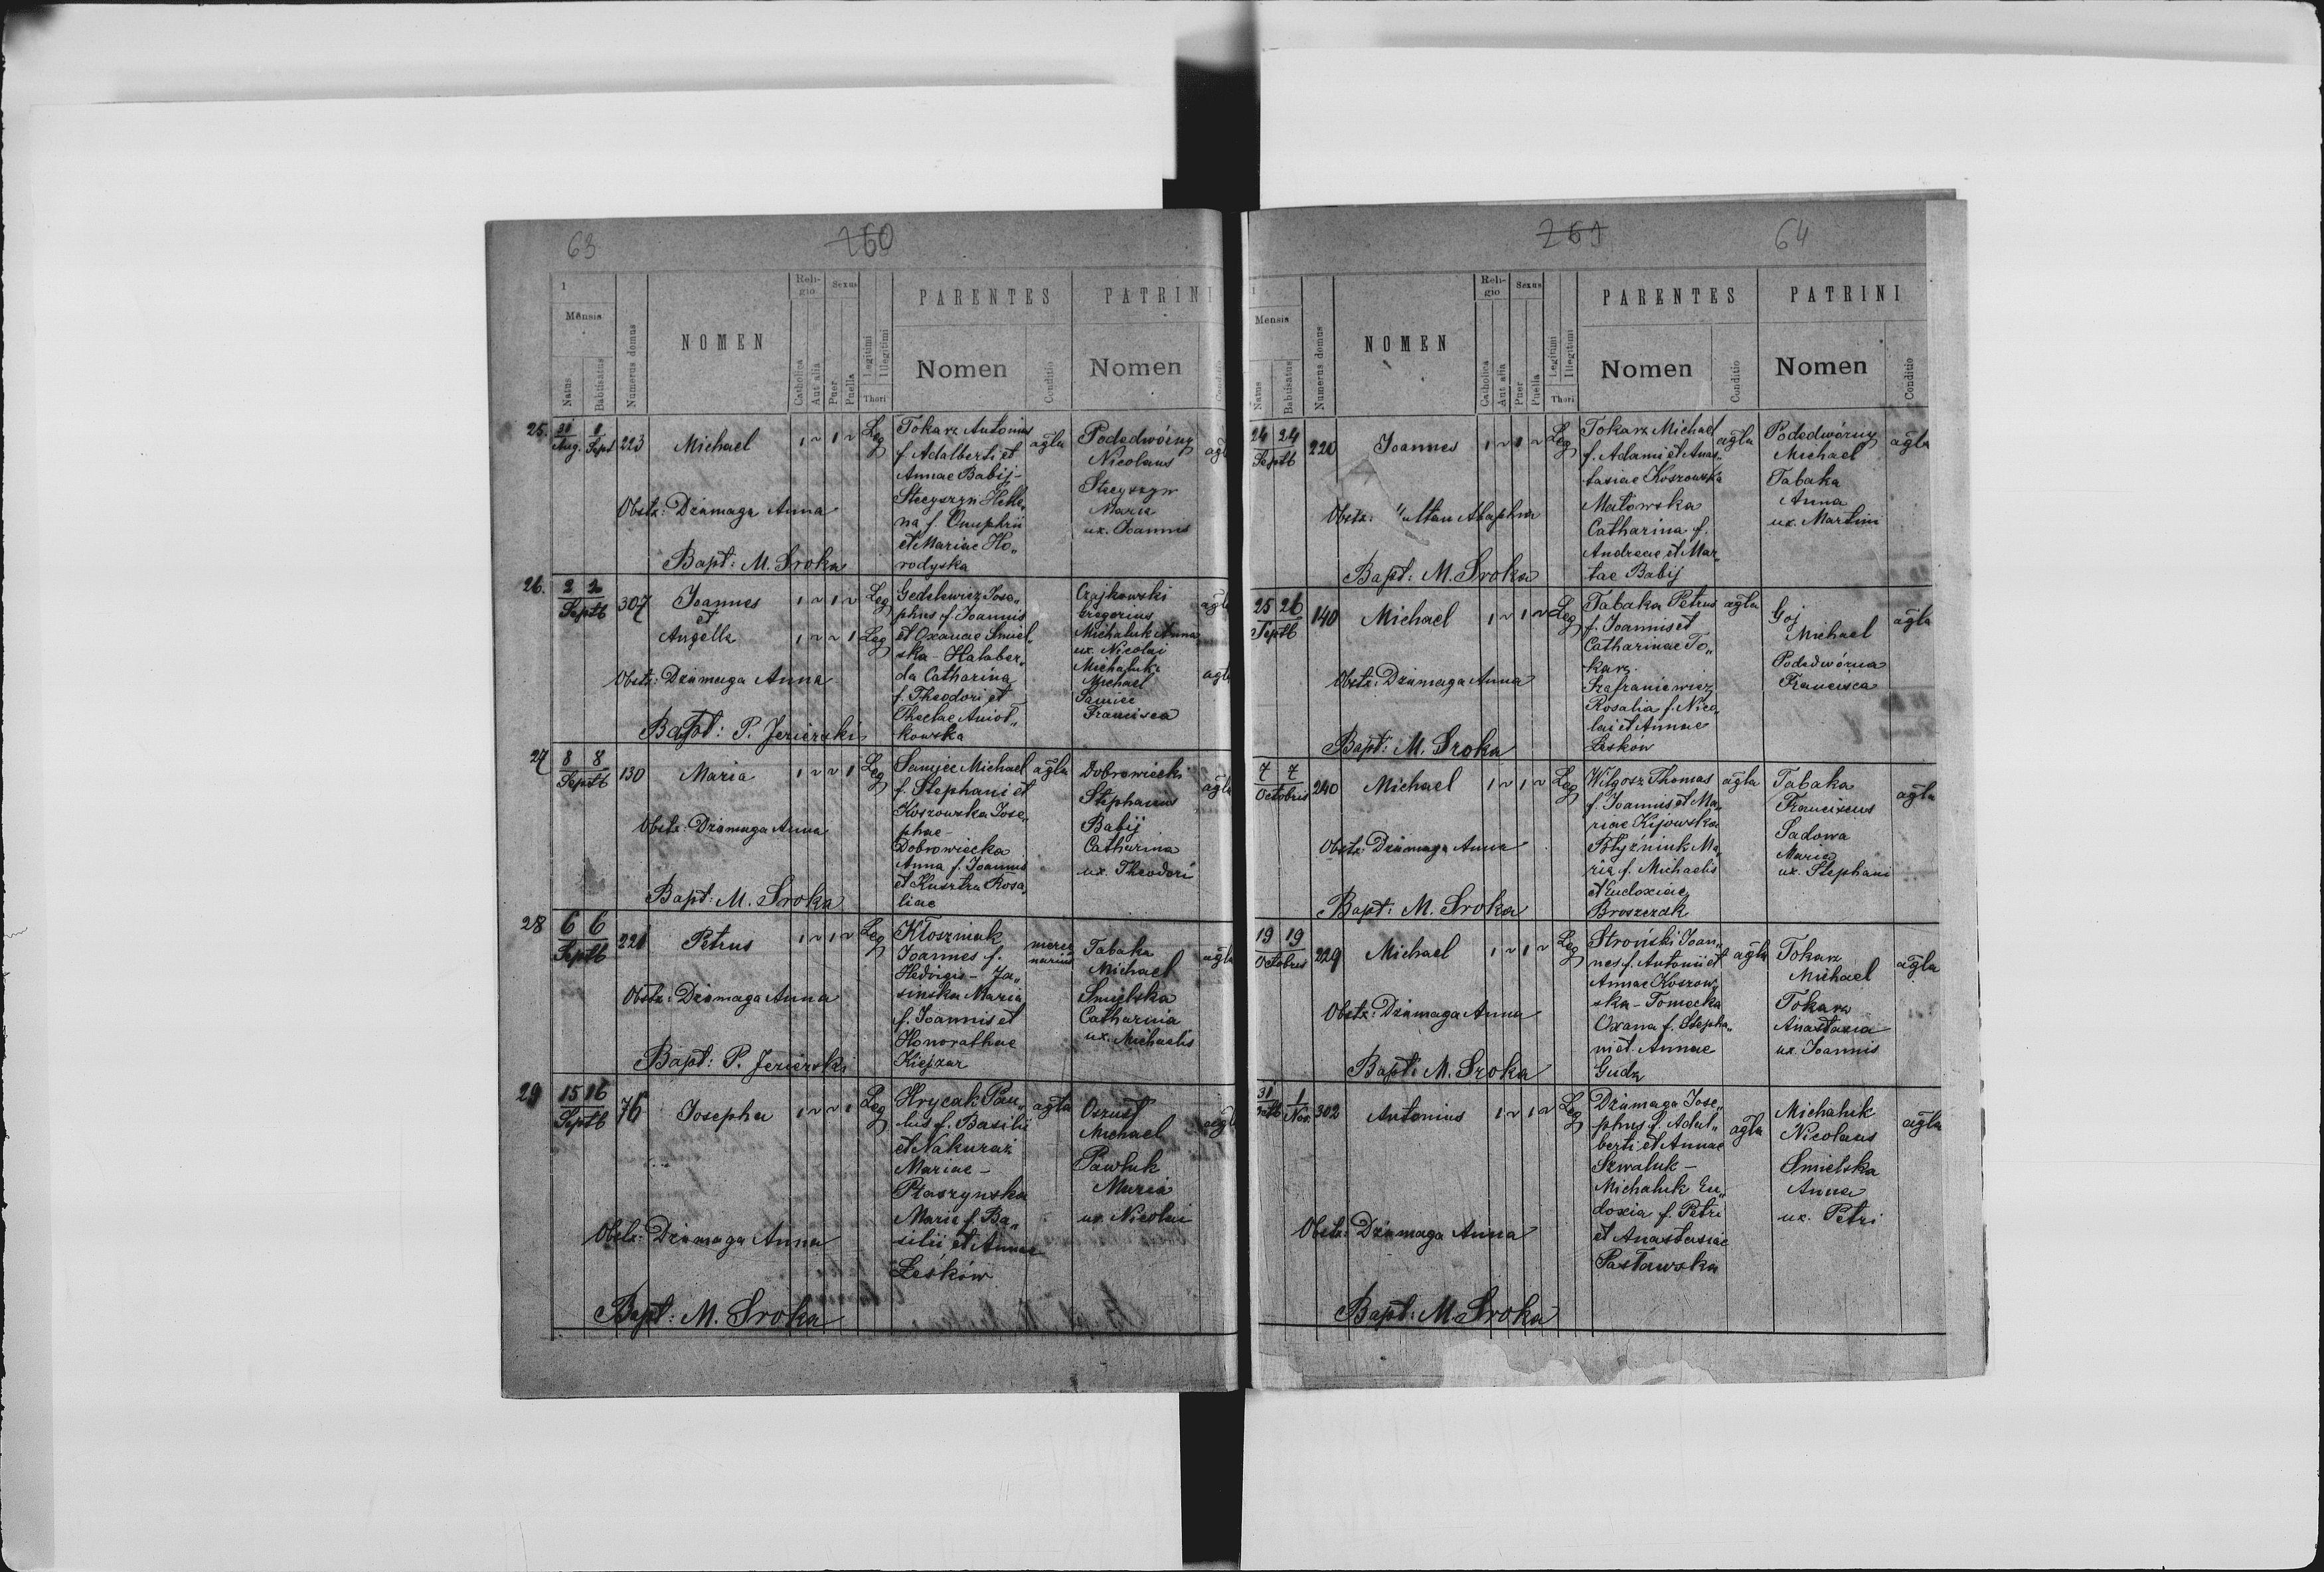 63
260
1
Mensis
Natus
Babtisatus
Numerus domus
NOMEN
Reli-
gio
Catholica
Aut alia
Sexus
Puer
Puella
Legitimi
Illegitimi
Thori
PARENTES
Nomen
Conditio
PATRINI
Nomen
Conditio
25.
31 1
Aug. Sept
223
Michael
1 ~ 1 ~
Leg
Tokarz Antonius
f. Adalberti et
Annae Babij-
Stecyszyn Hele„
na f. Onuphrii
et Mariae Ho„
rodyska
agla
Podedwórny
Nicolaus
Stecyszyn
Maria
ux. Joannis
Obstz: Dżumaga Anna
Bapt: M. Sroka
26.
2 2
Septb
307
Joannes
et
Angella
1 ~ 1 ~ Leg
1 ~ ~ 1 Leg
Gedelewicz Jose„
phus f. Joannis
et Oxanae Smiel„
ska - Halaber„
da Catharina
f. Theodori et
Theclae Aniot„
kowska
Czajkowski
Gregorius
Michaluk Anna
ux. Nicolai
Michaluk
Michael
Samiec
Francisca
agla
agla
Obstz: Dżumaga Anna
Bapt: P. Jezierski
27
8 8
Septb
130
Maria
1 ~ ~ 1
Leg
Samjec Michael
f. Stephani et
Koszowska Jose„
phae -
Dobrowiecka
Anna f. Joannis
et Kusztra Rosa„
liae
agla
Dobrowiecki
Stephanus
Babij
Catharina
ux. Theodori
agla
Obstz: Dżumaga Anna
Bapt: M. Sroka
28
6 6
Septb
221
Petrus
1 ~ 1 ~
Leg
Kłoszniak
Joannes f.
Hedvigis - Ja„
sinska Maria
f. Joannis et
Honorathae
Kiejzar
merce
narius
Tabaka
Michael
Smielska
Catharina
ux. Michaelis
agla
Obstz: Dżumaga Anna
Bapt: P. Jezierski
29
15 16
Septb
76
Josepha
1 ~ ~ 1
Leg
Hrycak Pau„
lus f. Basilii
et Nakuraż
Mariae -
Ptaszynska
Maria f. Ba„
silii et Annae
Lesków
agla
Oszust
Michael
Pawluk
Maria
ux. Nicolai
agla
Obstz: Dżumaga Anna
Bapt: M. Sroka
261
64
1
Mensis
Natus
Babtisatus
Numerus domus
NOMEN
Reli-
gio
Catholica
Aut alia
Sexus
Puer
Puella
Legitimi
Illegitimi
Thori
PARENTES
Nomen
Conditio
PATRINI
Nomen
Conditio
24 24
Septb
220
Joannes
1 ~ 1 ~
Leg
Tokarz Michael
f. Adami et Anas„
tasiae Koszowska
Matowska
Catharina f.
Andreae et Mar„
tae Babij
agla
Podedwórny
Michael
Tabaka
Anna
ux. Martini
agla
Obstz:
Bapt: M. Sroka
25 26
Septb
140
Michael
1 ~ 1 ~
Leg
Tabaka Petrus
f. Joannis et
Catharinae To„
karz.
Szafraniewicz
Rosalia f. Nico„
lai et Annae
Lesków
agla
Goj
Michael
Podedwórna
Francisca
agla
Obstz: Dżumaga Anna
Bapt: M. Sroka
7 7
Octobris
240
Michael
1 ~ 1 ~
Leg
Wilgosz Thomas
f. Joannis et Ma„
riae Kijowska
Ma„
ria f. Michaelis
et Eudoxiae
Broszczak
agla
Tabaka
Franciscus
Sadowa
Maria
ux. Stephani
agla
Obstz: Dżumaga Anna
Bapt: M. Sroka
19 19
Octobris
229
Michael
1 ~ 1 ~
Leg
Stroński Joan„
nes f. Antonii et
Annae Koszow„
ska - Tomecka
Oxana f. Stepha„
ni et Annae
Gudz
agla
Tokarz
Michael
Tokarz
Anastasia
ux. Joannis
agla
Obstz: Dżumaga Anna
Bapt: M. Sroka
31 1
Octb Nov.
302
Antonius
1 ~ 1 ~
Leg
Dżumaga Jose„
phus f. Adal„
berti et Annae
Szwaluk -
Michaluk Eu„
doxia f. Petri
et Anastasiae
Pastawska
agla
Michaluk
Nicolaus
Smielska
Anna
ux. Petri
agla
Obstz: Dżumaga Anna
Bapt: M. Sroka